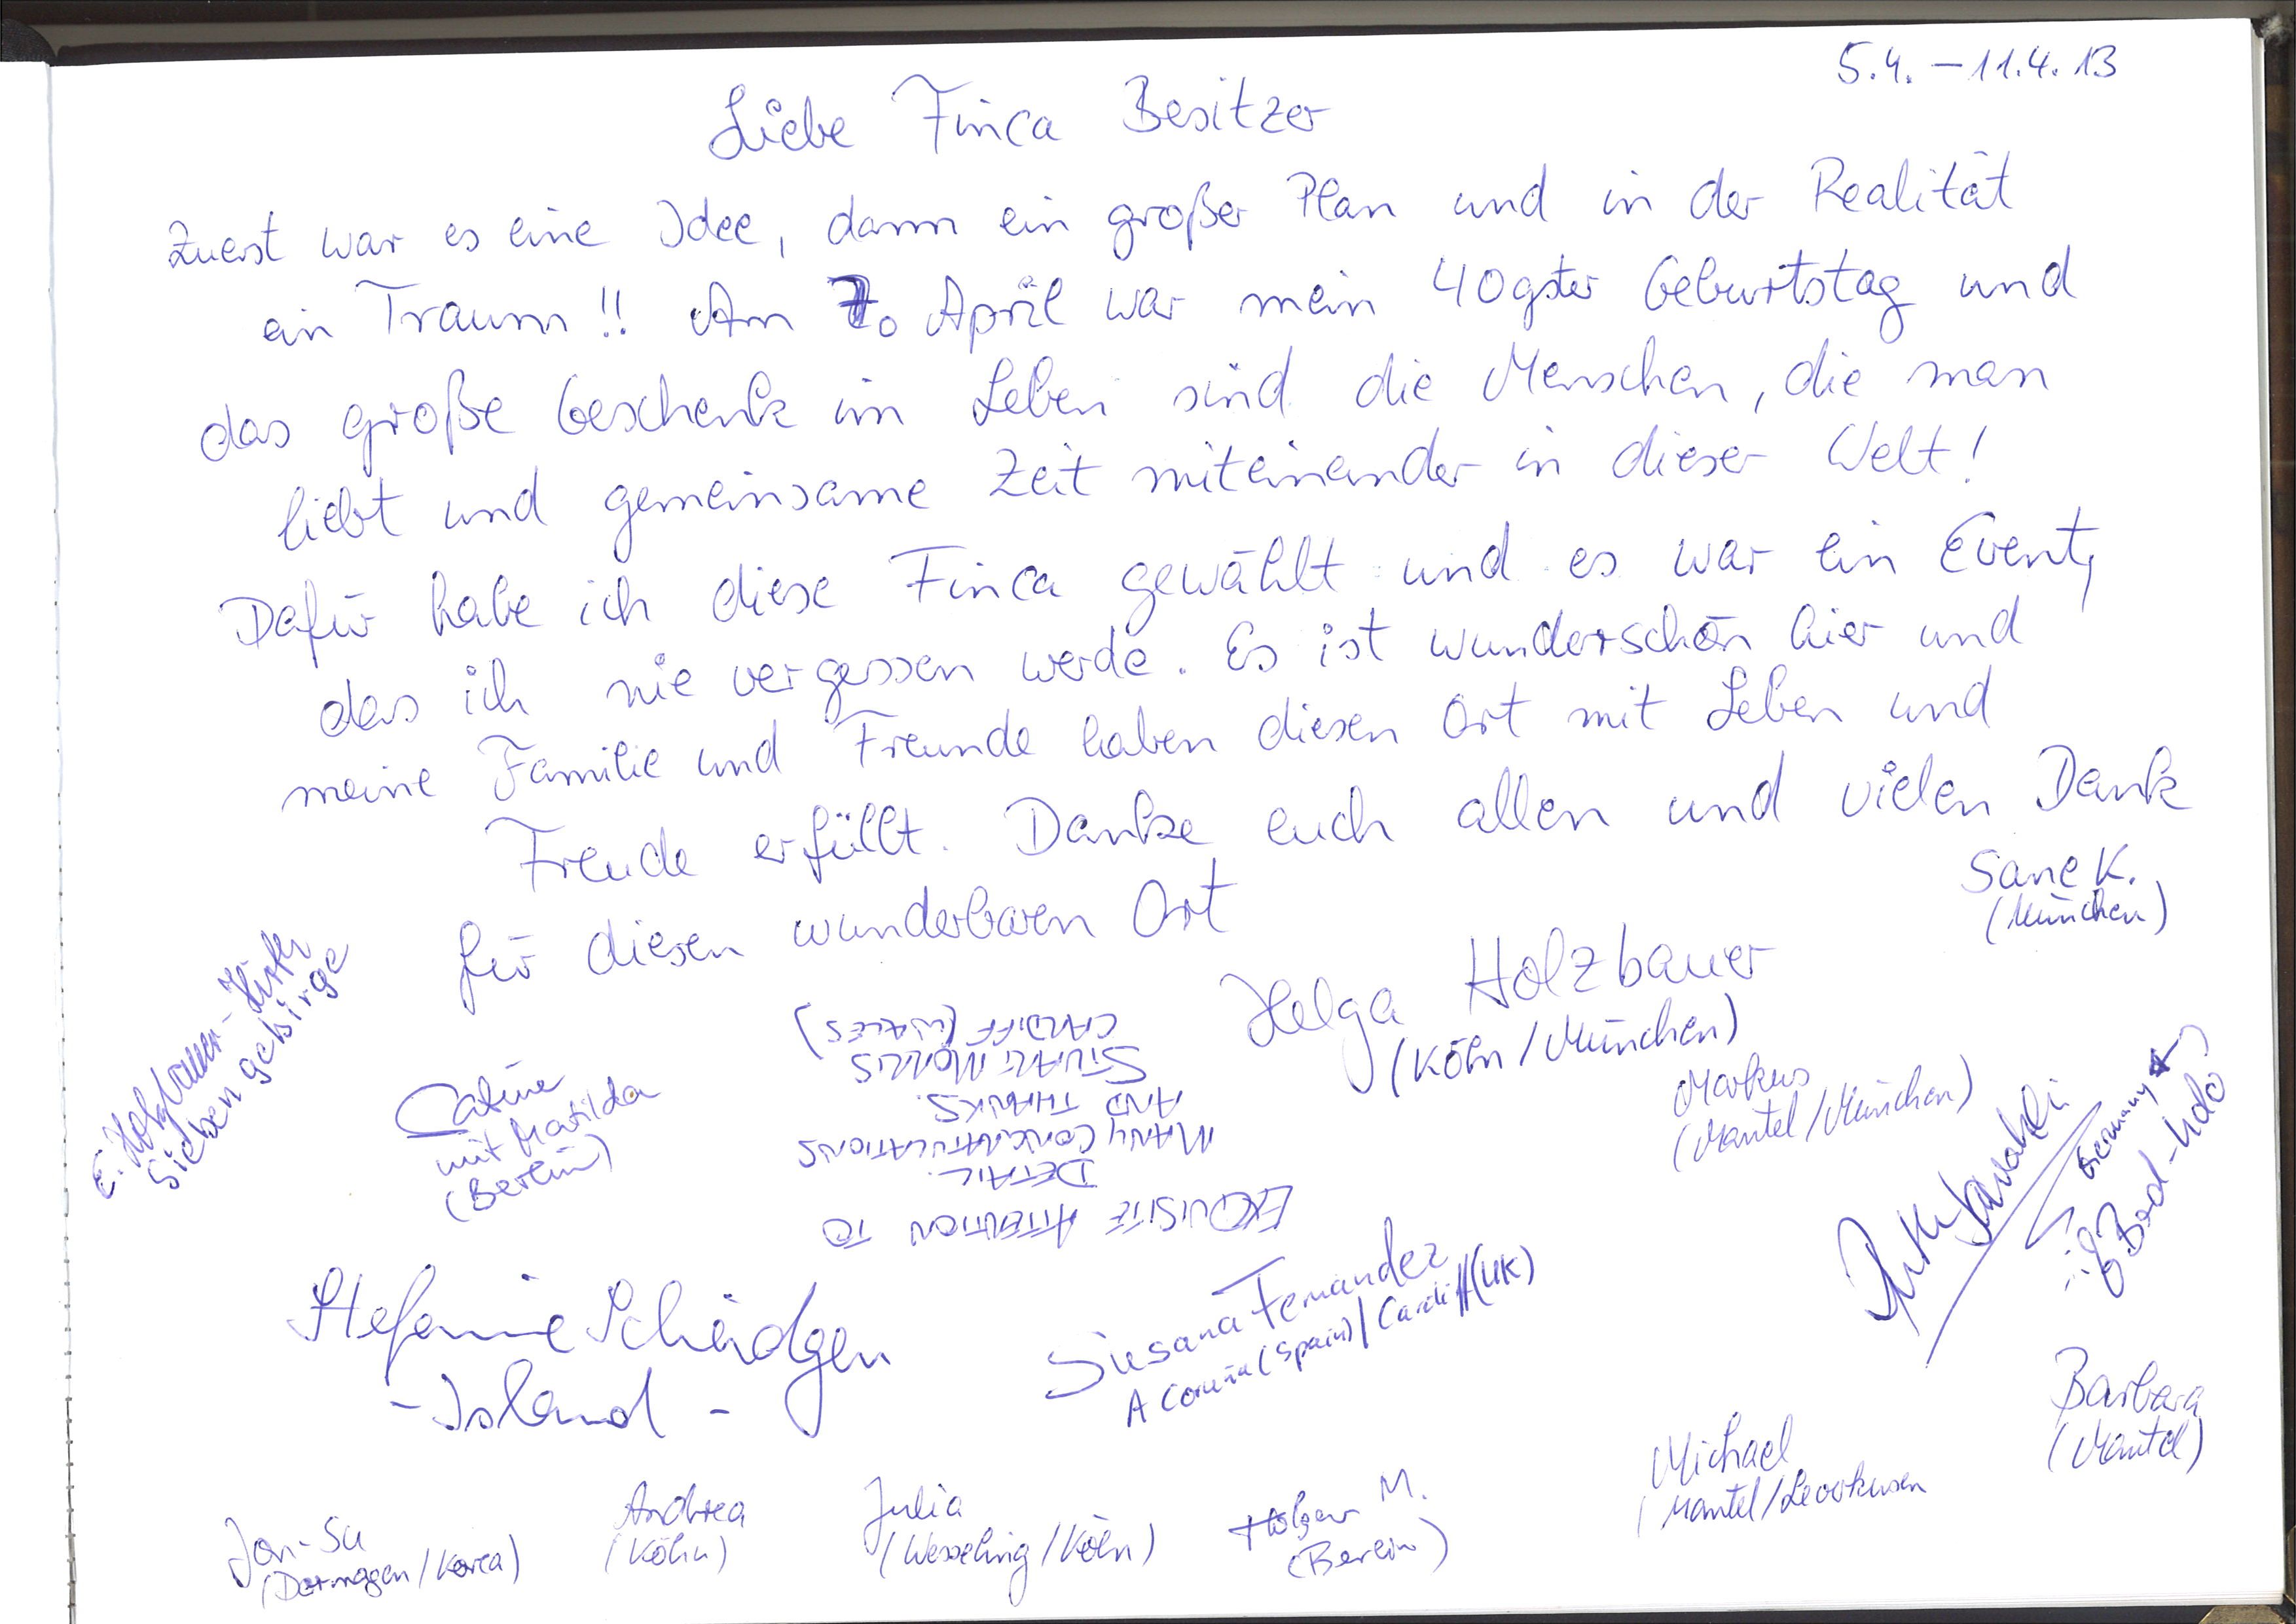 5.4. – 11.4. 13
Liebe Finca Besitzer
Zuerst war es eine Idee, dann ein großer Plan und in der Realität
ein Traum!! Am 7. April war mein 40gster Geburtstag und
das große Geschenk im Leben sind die Menschen, die man
liebt und gemeinsame Zeit miteinander in dieser Welt!
Dafür habe ich diese Finca gewählt und es war ein Event,
das ich nie vergessen werde. Es ist wunderschön hier und
meine Familie und Freunde haben diesen Ort mit Leben und
Freude erfüllt. Danke euch allen und vielen Dank
für diesen wunderbaren Ort
Sane K.
(München)
Helga Holzbauer
(Köln/München)
E. Holzbauer-
Siebengebirge
Sabine
mit Matilda
(Berlin)
EXQUISITE ATTENTION TO
DETAIL.
MANY CONGRATULATIONS
AND THANKS.
STUART MORRIS
CARDIFF (WALES)
Markus
(Mantel/München)
Germany
Stefanie Scheidgen
- Island -
Susana Fernandez
A Coruña (Spain)/Cardiff (UK)
Barbara
(Mantel)
Michael
(Mantel/Leverkusen
Jan-Su
(Dormagen/Korea)
Andrea
(Köln)
Julia
(Wesseling/Köln)
Holger M.
(Berlin)